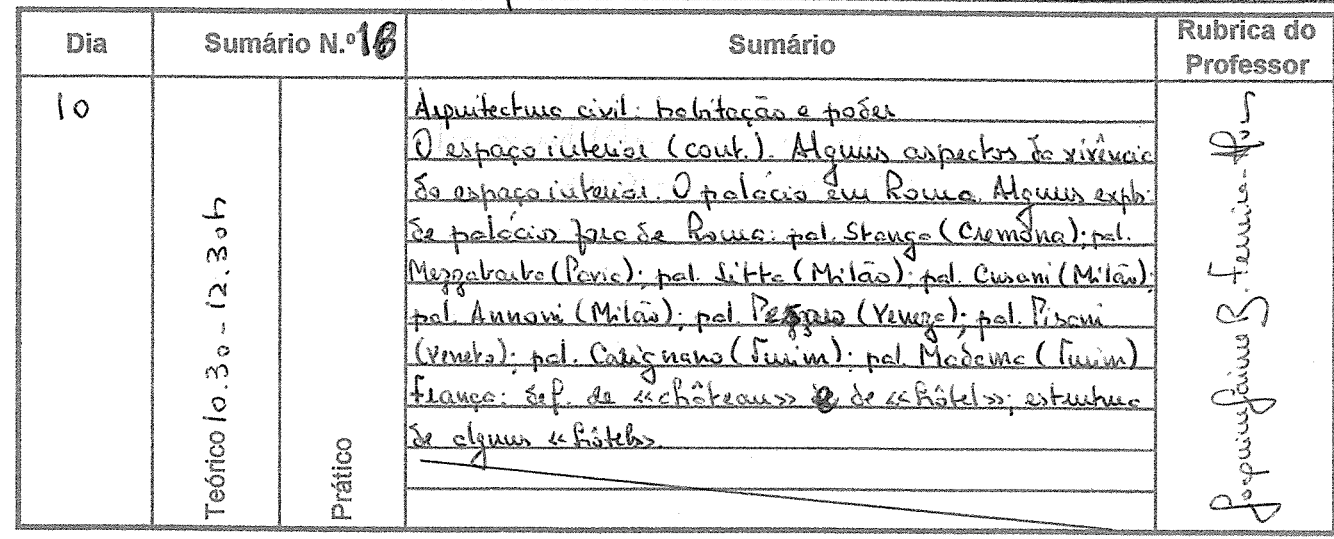 Dia
Sumário N.º 18
Sumário
Rubrica do
Professor
10
Teórico 10.30 - 12.30h
Prático
Arquitectura civil: habitação e poder
O espaço interior (cont.). Alguns aspectos da vivência
do espaço interior. O palácio em Roma. Alguns expls.
de palácios fora de Roma: pal. Stanga (Cremona); pal.
Mezzabarba (Pavia); pal. Litta (Milão); pal. Cusani (Milão);
pal. Annoni (Milão); pal. Pesaro (Veneza); pal. Pisani
(Veneto); pal. Carignano (Turim); pal. Madama (Turim)
França: def. de «château» e de «hôtel»; estrutura
de alguns «hôtels»
Joaquim Jaime B. Ferreira-Alves